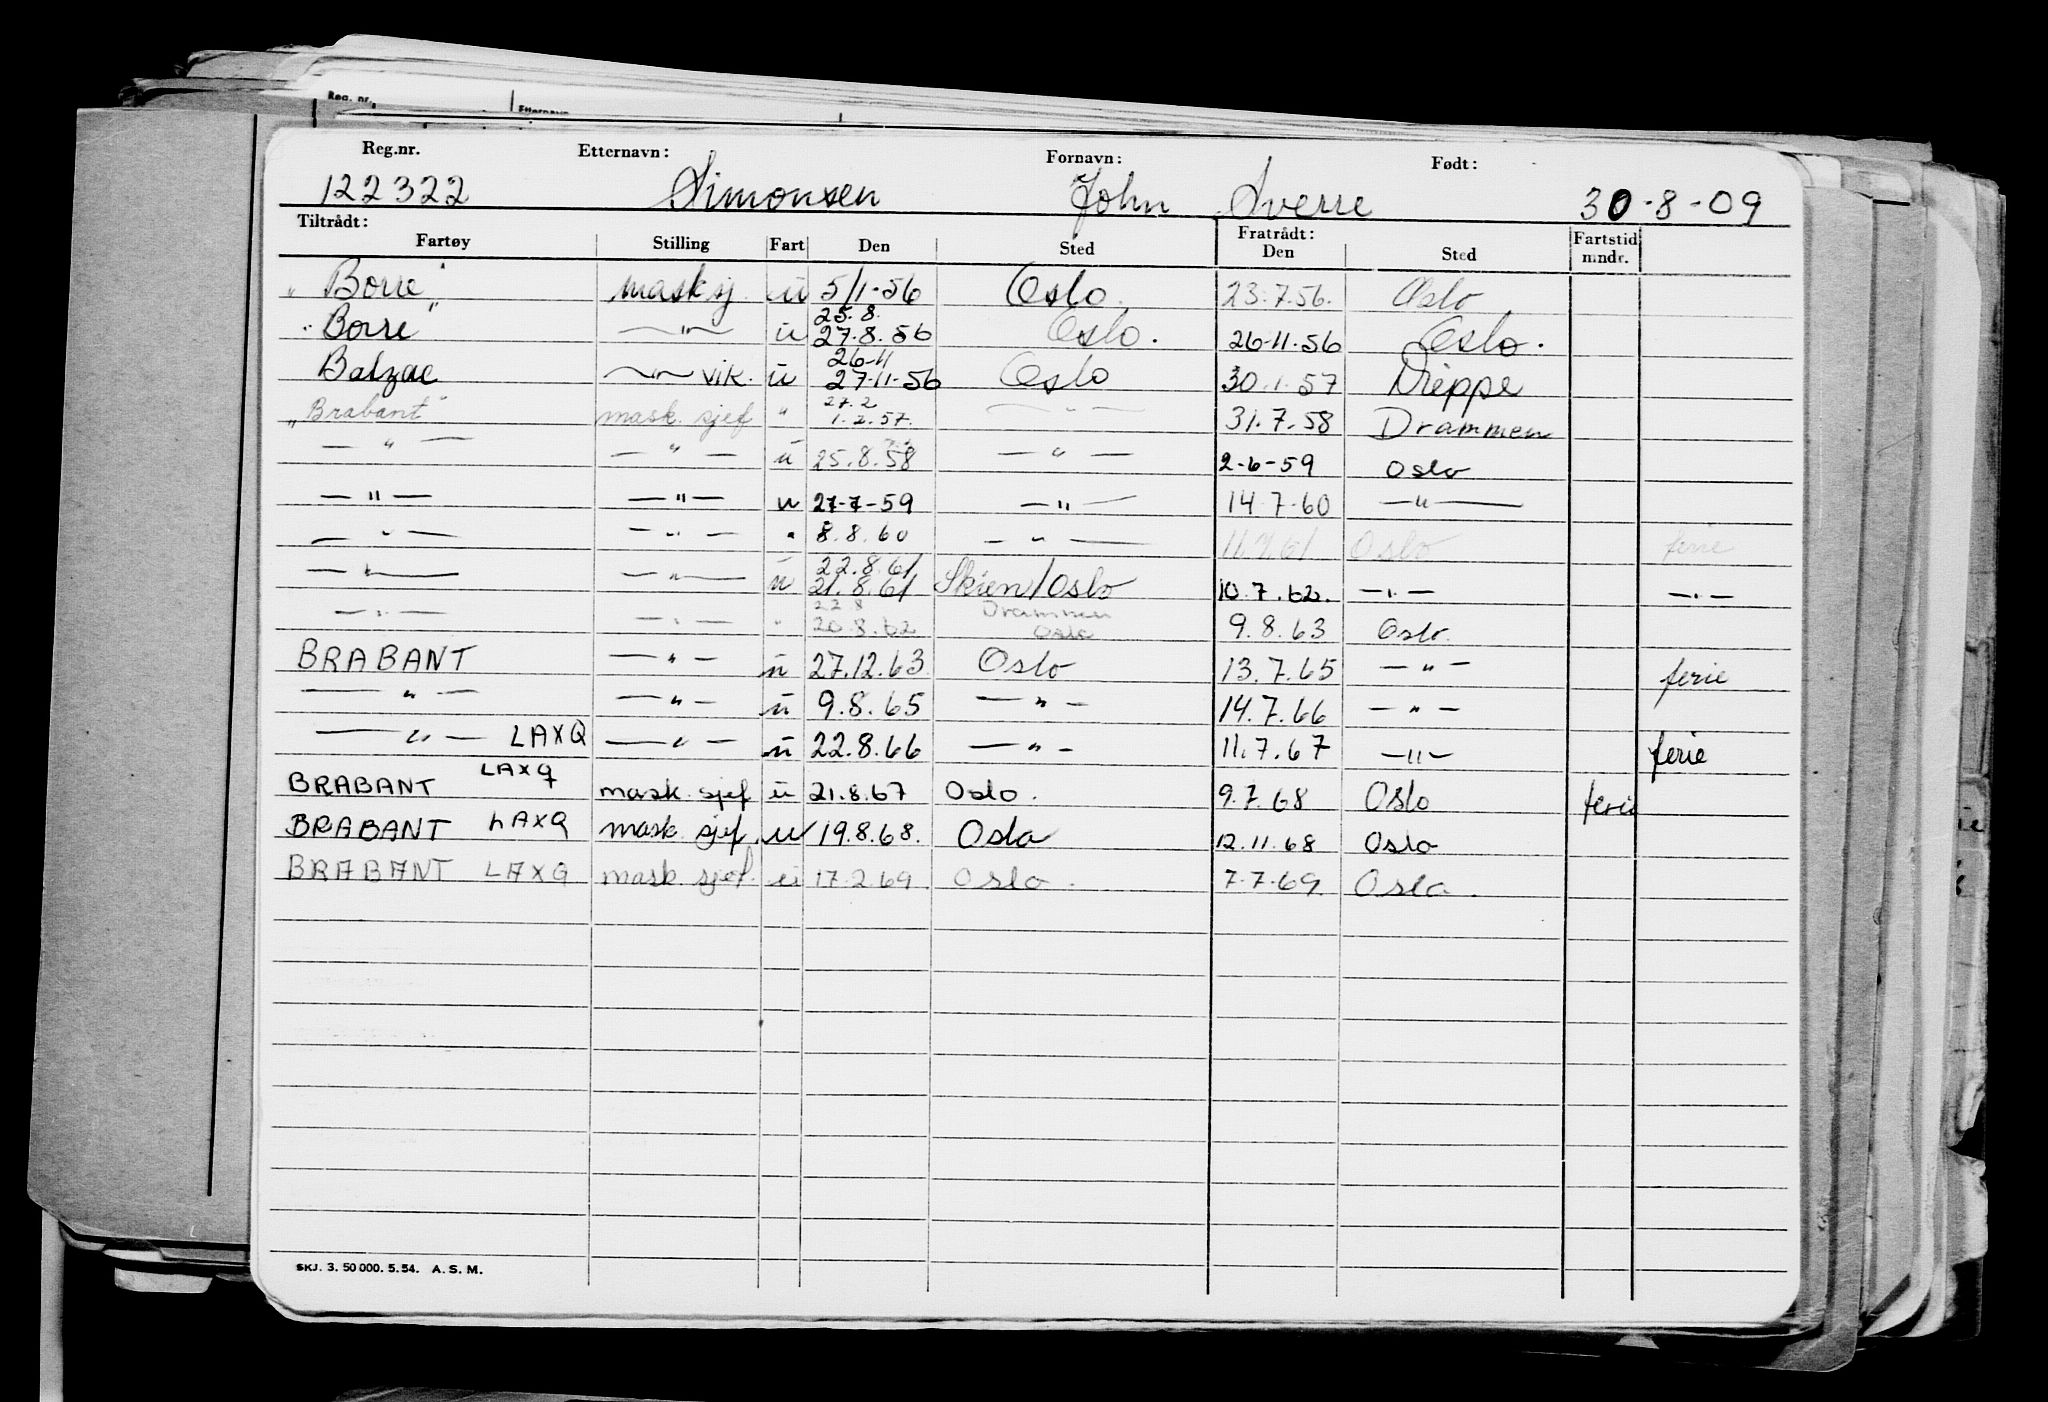 Reg. nr. Etternavn
Reg.nr. Etternavn: Fornavn: Født:
122322 Simonsen John Sverre 30-8-09
Tiltrådt: Fratrådt:
Fartøy Stilling Fart Den Sted Den Sted Fartstid mndr.
"Borre" mask sj. u 5/1-56 Oslo. 23.7.56. Oslo
25.8.
"Borre" —"— u 27.8.56 Oslo. 26-11-56 Oslo.
26-11
Balzac —"— vik. u 27-11-56 Oslo 30.1.57 Dieppe
27.2
"Brabant" mask. sjef " 1.2.57. —"— 31.7-58 Drammen
—"— —"— u 25.8.58 —"— 2-6-59 Oslo
—"— —"— u 27-7-59 —"— 14.7-60 —"—
—"— —"— " 8.8.60 —"— 11.7.61 Oslo ferie
22.8.61
—"— —"— u 21.8.61 Skien/Oslo 10.7.62. —"— —"—
22.8 Drammen
—"— —"— " 20.8.62 Oslo 9.8.63 Oslo.
BRABANT —"— u 27.12.63 Oslo 13.7.65 —"— ferie
—"— —"— u 9.8.65 —"— 14.7.66 —"—
—"— LAXQ —"— u 22.8.66 —"— 11.7.67 —"— ferie
BRABANT LAXQ mask. sjef u 21.8.67 Oslo. 9.7.68 Oslo ferie
BRABANT LAXQ mask. sjef. u 19.8.68. Oslo 12.11.68 Oslo
BRABANT LAXQ mask. sjef. u 17.2.69. Oslo. 7.7.69. Oslo.
SKJ. 3. 50 000. 5. 54. A. S. M.